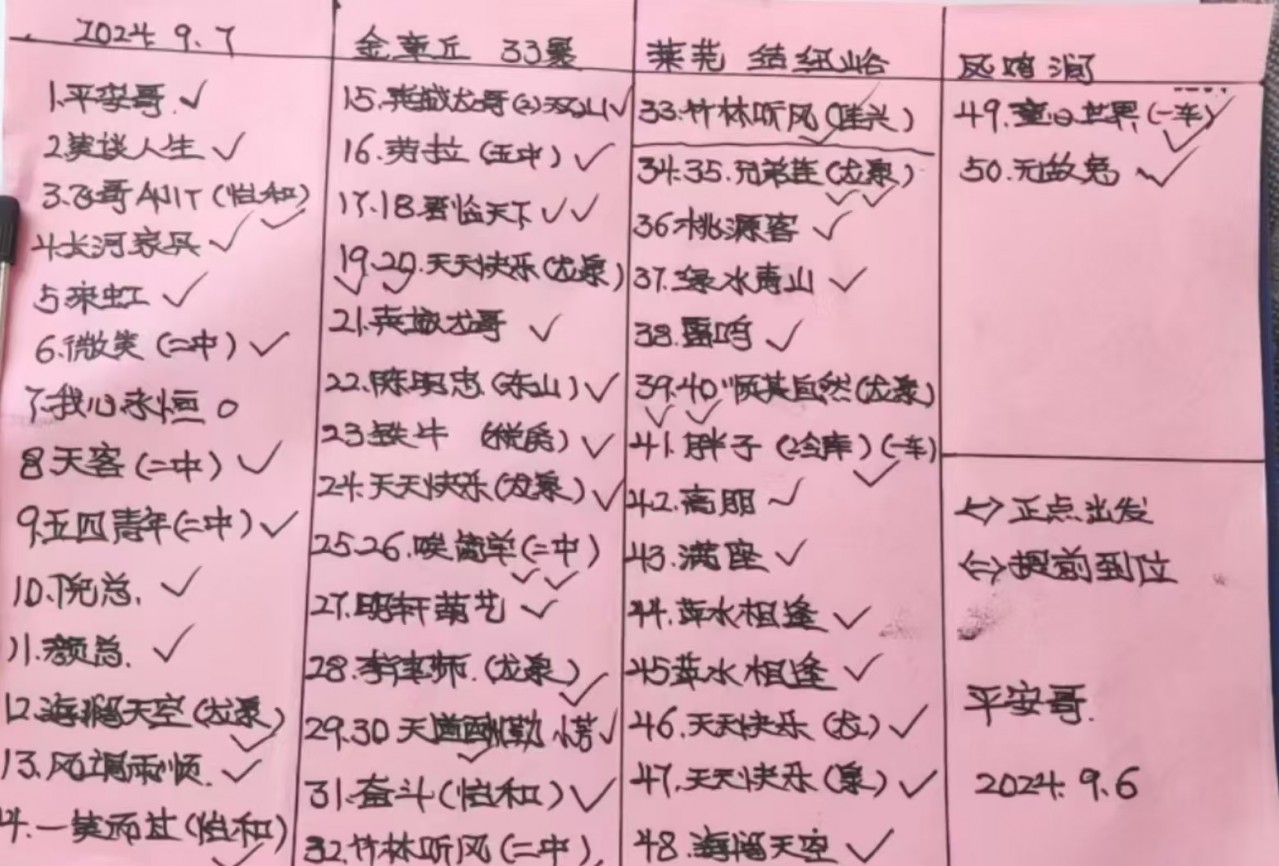 2024.9.7
1.平安哥 ✓
2.笑谈人生 ✓
3.飞哥ANIT(怡和) ✓
4.长河 ✓
5.采虹 ✓
6.微笑(二中) ✓
7.我心永恒 0
8.天客(二中) ✓
9.五四青年(二中) ✓
10.倪总. ✓
11.颜总. ✓
12.海阔天空(龙泉) ✓
13.风调雨顺. ✓
14.一笑而过(怡和) ✓
金章丘 33聚
15.英雄龙哥(2)双山 ✓
16.劳拉(五中) ✓
17.18.君临天下 ✓✓
19.20.天天快乐(龙泉) ✓✓
21.英雄龙哥 ✓
22.陈明忠.(东山) ✓
23.铁牛 (税务) ✓
24.天天快乐(龙泉) ✓
25.26.唉简单(二中) ✓✓
27.明轩 艺 ✓
28.李老师.(龙泉) ✓
29.30 天道酬勤 ✓✓
31.奋斗(怡和) ✓
32.竹林听风(二中)
莱芜 结纽峪
33.竹林听风(佳兴) ✓
34.35.兄弟连(龙泉) ✓✓
36桃源客 ✓
37.绿水青山 ✓
38.雷鸣 ✓
39.40顺其自然(龙泉) ✓✓
41.胖子(冷库)(一车) ✓
42.高朋 ✓
43.满座 ✓
44.萍水相逢 ✓
45萍水相逢 ✓
46.天天快乐(龙) ✓
47.天天快乐(泉) ✓
48.海阔天空 ✓
凤鸣涧
49.童话世界(一车) ✓
50.无敌兔 ✓
正点出发
提前到位
平安哥.
2024.9.6